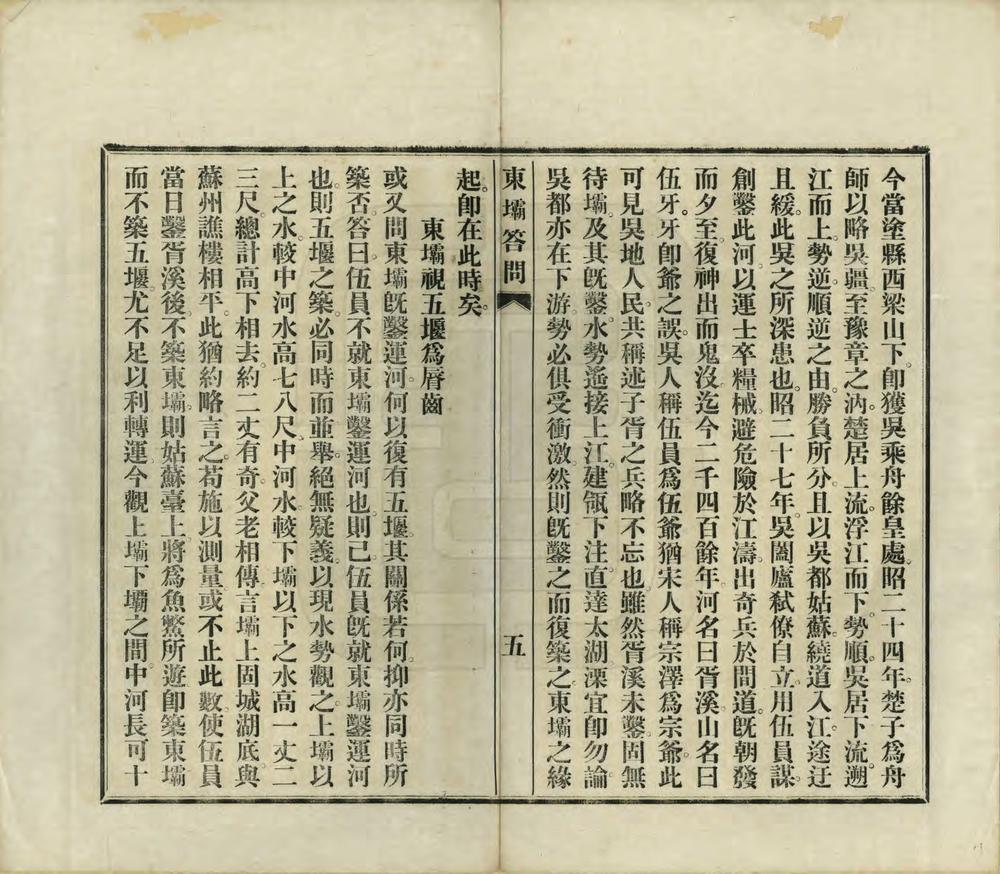 今當塗縣西梁山下。卽獲吳乘舟餘皇處。昭二十四年。楚子爲舟
師以略吳疆。至豫章之汭。楚居上流。浮江而下。勢順。吳居下流。溯
江而上。勢逆。順逆之由。勝負所分。且以吳都姑蘇。繞道入江。途迂
且緩。此吳之所深患也。昭二十七年。吳闔廬弒僚自立。用伍員謀
創鑿此河。以運士卒糧械。避危險於江濤。出奇兵於間道。旣朝發
而夕至。復神出而鬼沒。迄今二千四百餘年。河名曰胥溪。山名曰
伍牙。牙卽爺之誤。吳人稱伍員爲伍爺。猶宋人稱宗澤爲宗爺。此
可見吳地人民。共稱述子胥之兵略不忘也。雖然胥溪未鑿。固無
待壩。及其旣鑿。水勢遙接上江。建瓴下注。直達太湖。溧宜卽勿論。
吳都亦在下游。勢必俱受衝激。然則旣鑿之而復築之。東壩之緣
東壩答問
五
起。卽在此時矣。
東壩視五堰爲脣齒
或又問東壩旣鑿運河。何以復有五堰。其關係若何。抑亦同時所
築否。答曰。伍員不就東壩鑿運河也。則已。伍員旣就東壩鑿運河
也。則五堰之築。必同時而並舉。絕無疑義。以現水勢觀之。上壩以
上之水。較中河水高七八尺。中河水。較下壩以下之水高一丈二
三尺。總計高下相去。約二丈有奇。父老相傳言壩上固城湖底與
蘇州譙樓相平。此猶約略言之。苟施以測量。或不止此數。使伍員
當日鑿胥溪後。不築東壩。則姑蘇臺上。將爲魚鱉所遊。卽築東壩
而不築五堰。尤不足以利轉運。今觀上壩下壩之間。中河長可十